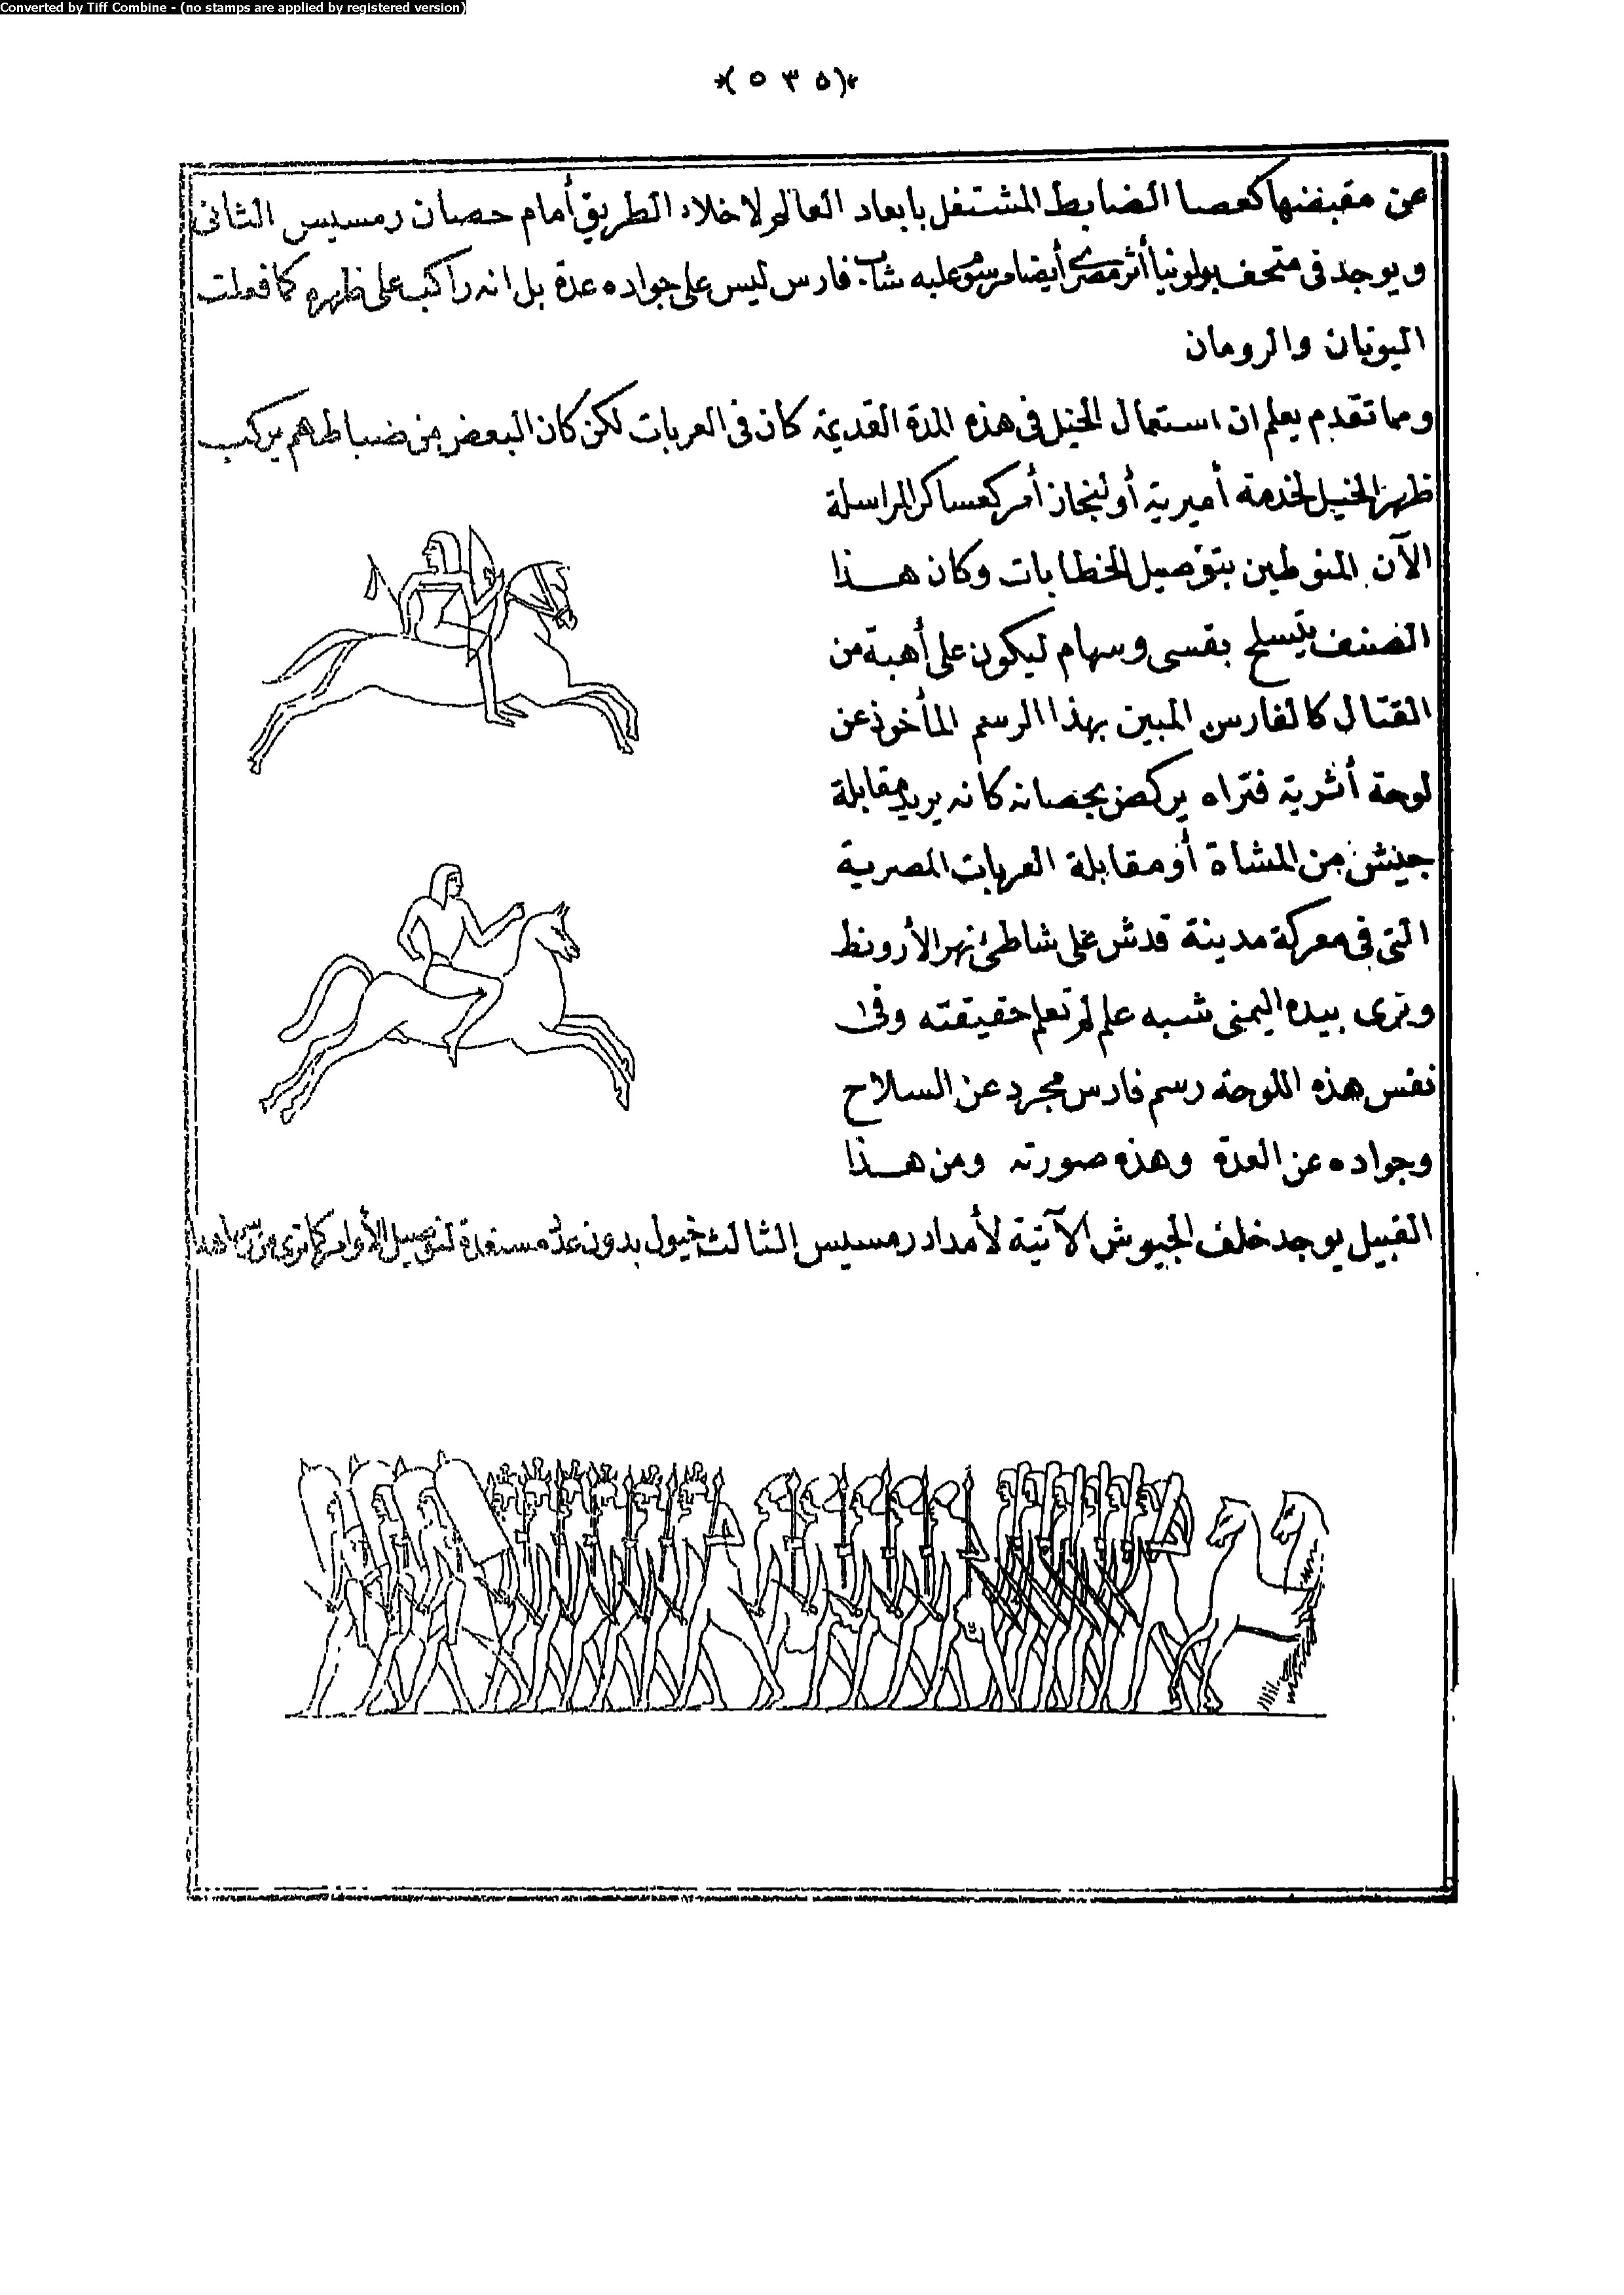 Converted by Tiff Combine - (no stamps are applied by registered version)
*(٥٣٥)*
عن مقبضها كعصا الضابط المشتغل بابعاد العالم لاخلاء الطريق أمام حصان رمسيس الثانى
ويوجد فى متحف بولونيا أثر مصرى أيضا مرسوم عليه شاب فارس ليس على جواده عدة بل انه راكب على ظهره كما فعلت
اليونان والرومان
ومما تقدم يعلم ان استعمال الخيل فى هذه المدة القديمة كان فى العربات لكن كان البعض من ضباطهم يركب
ظهر الخيل لخدمة أميرية أو لنجاز أمر كعساكر المراسلة
الآن المنوطين بتوصيل الخطابات وكان هـــذا
الصنف يتسلح بقسى وسهام ليكون على أهبة من
القتال كالفارس المبين بهذا الرسم المأخوذ عن
لوحة أثرية فتراه يركض بحصانه كانه يريد مقابلة
جيش من المشاة أو مقابلة العربات المصرية
التى فى معركة مدينة قدش على شاطئ نهر الأرونط
وترى بيده اليمنى شبه علم لم تعلم حقيقته وفى
نفس هذه اللوحة رسم فارس مجرد عن السلاح
وجواده عن العدة وهذه صورته ومن هـــذا
القبيل يوجد خلف الجيوش الآتية لأمداد رمسيس الثالث خيول بدون عدد مستعدة لتوصيل الأوامر كما ترى من